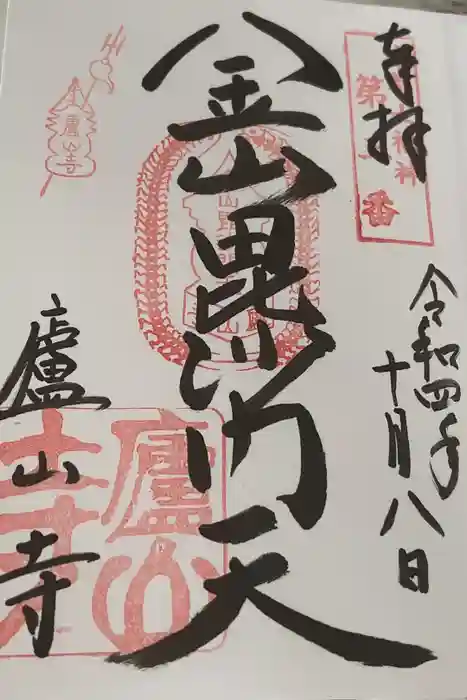 奉拝
令和四年
十月八日
金山毘沙門天
廬山寺
第一番
廬山寺
廬山寺